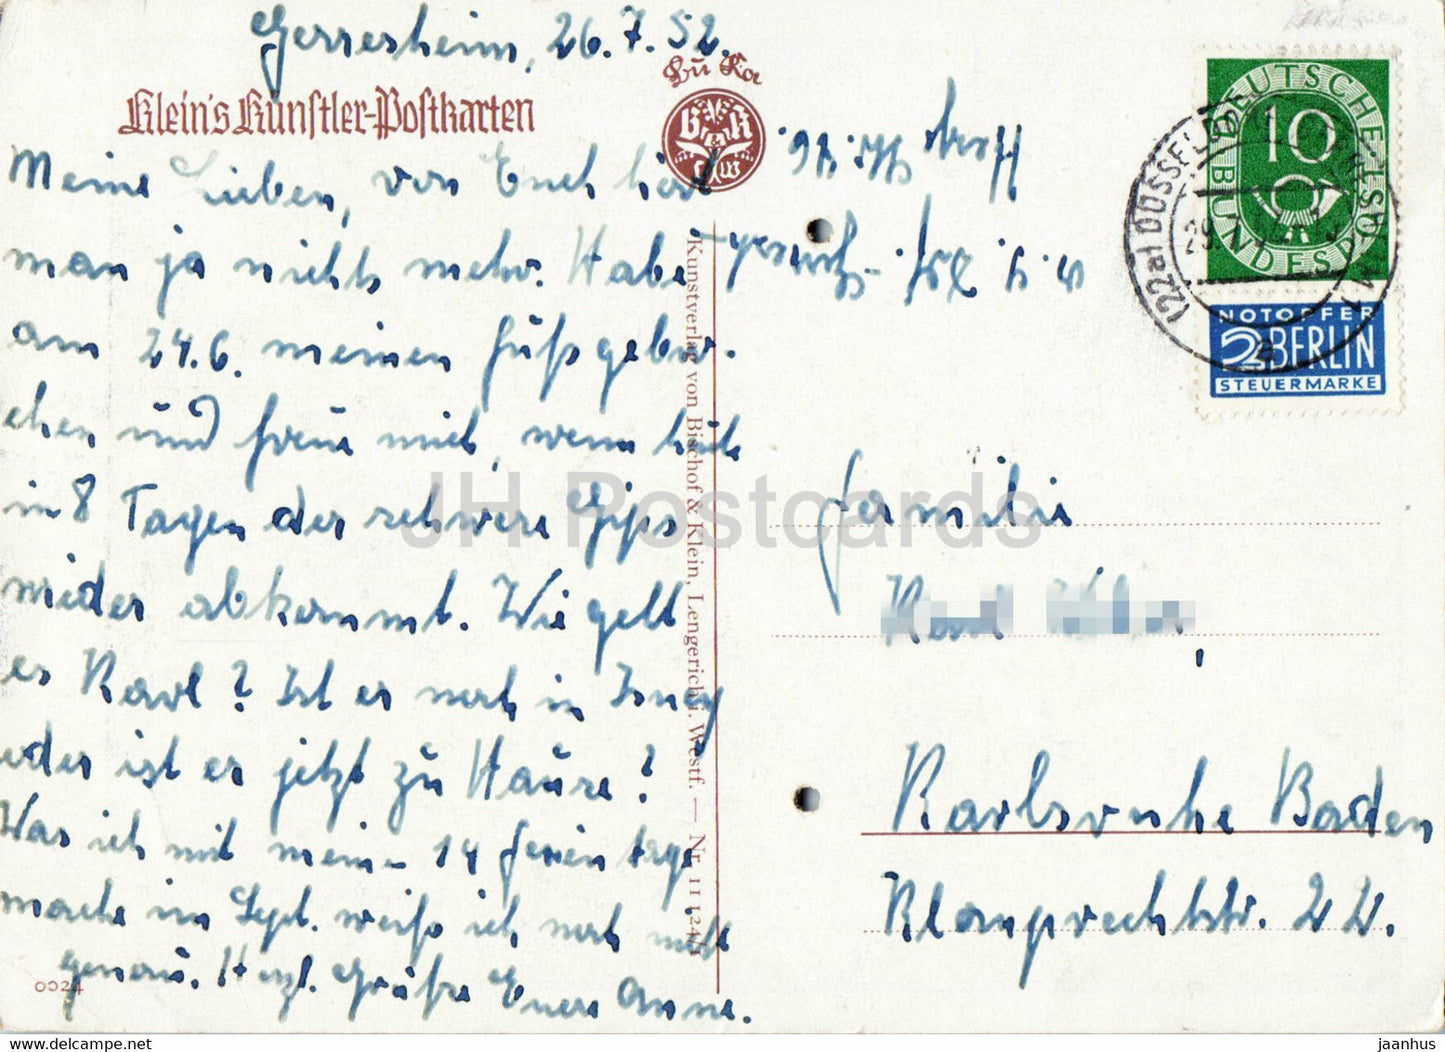 Gerresheim, 26.7.52.
Klein's Künstler-Postkarten
Bu Ka
B & K
L i W
Meine Lieben, von Euch hört
man ja nichts mehr. Habe
am 24.6. meinen Fuß gebro-
chen und freue mich, wenn heute
in 8 Tagen der schwere Gips
wieder abkommt. Wie geht
es Karl? Ist er noch in Isny
oder ist er jetzt zu Hause?
Was ich mit meinen 14 Ferientage
mache im Sept. weiß ich noch nicht
genau. Herzl. Grüße Eure Anna.
0024
Kunstverlag von Bischof & Klein, Lengerich i. Westf. — Nr. 11124/1
DEUTSCHE BUNDESPOST
10
(22a) DÜSSELDORF-GERRESHEIM 1
a
NOTOPFER
2 BERLIN
STEUERMARKE
Familie
Karl
Karlsruhe Baden
Klauprechtstr. 22.
JH Postcards
jaanhus